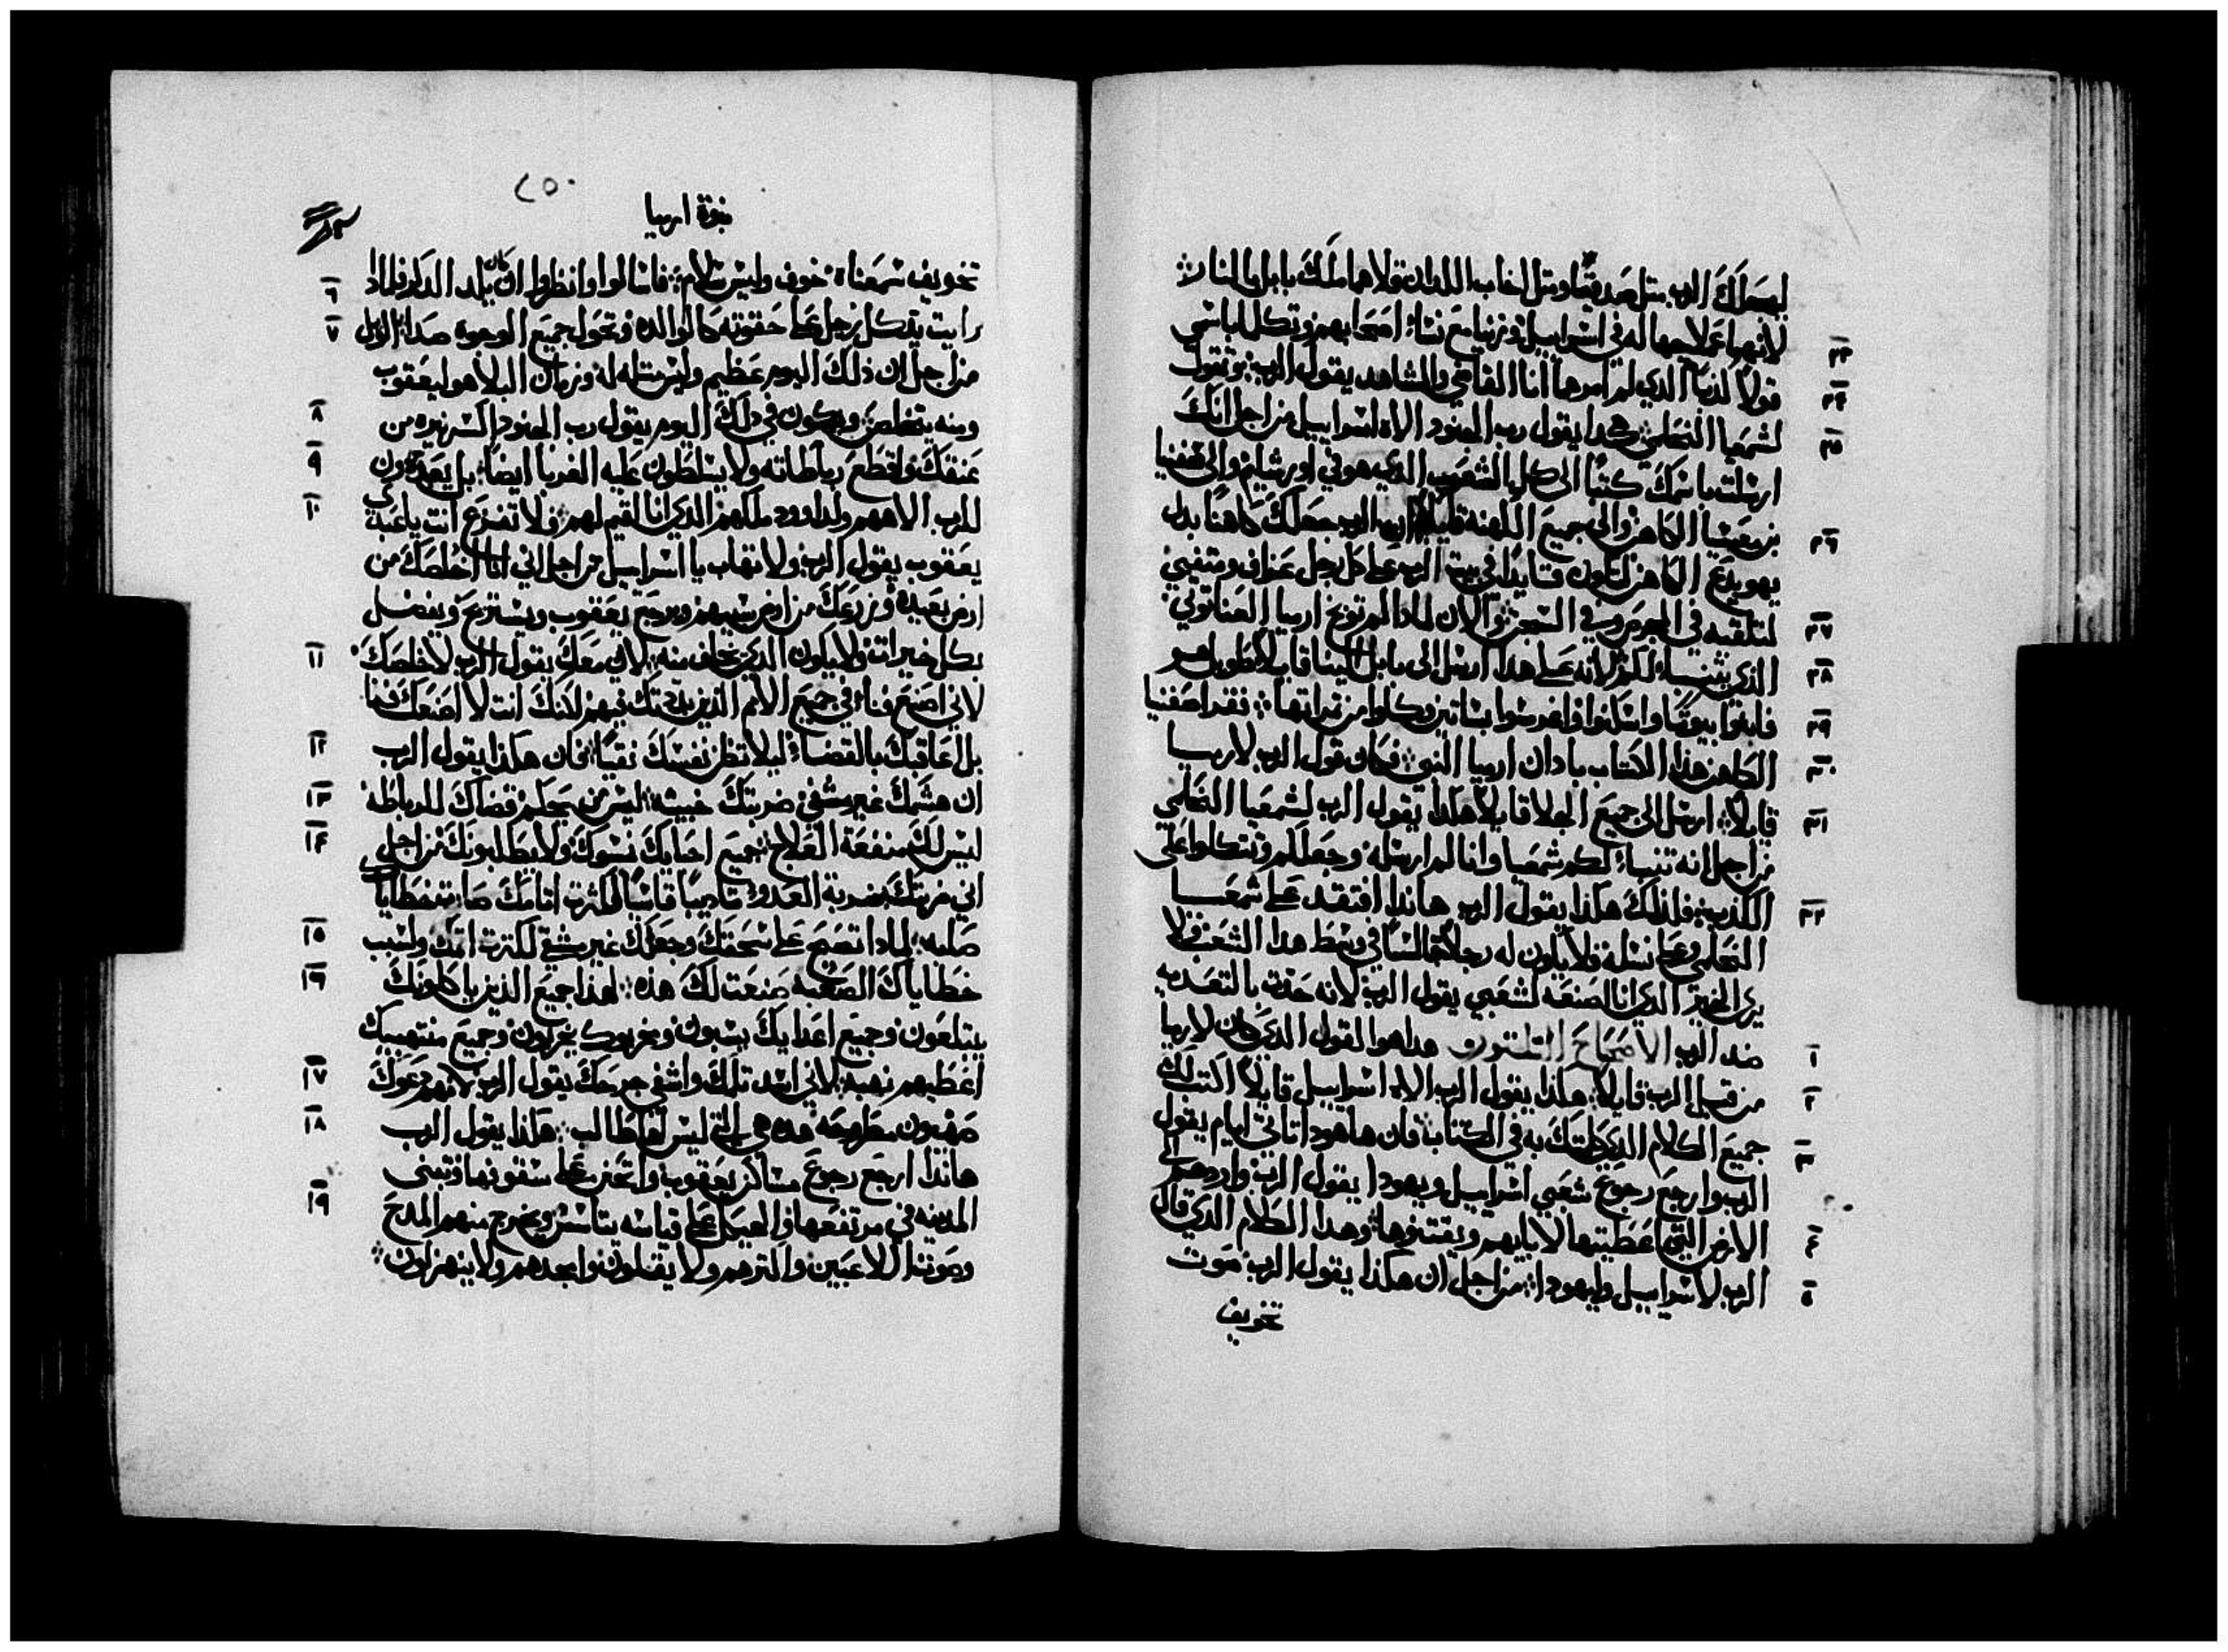 ليجعلك الرب مثل صدقيا ومثل اخاب اللدان قلاهما ملك بابل بالنار
٢٣ لانهما عملا جهاله في اسراييل وزنيا مع نساء اصحابهم وتكلما باسمي
٢٤ قولاً كذباً الذي لم امرهما انا القاضي والشاهد يقول الرب وتقول
٢٥ لشمعيا النحلمي هكدا يقول رب الجنود الاه اسراييل من اجل انك
ارسلت باسمك كتباً الى كل الشعب الذي هو في اورشليم والى صفنيا
٢٦ بن معسيا الكاهن والى جميع الكهنه قايلاً الرب جعلك كاهناً بدل
يهويدع الكاهن لتكون قايداً في بيت الرب على كل رجل عراف ومتنبي
٢٧ لتلقيه في الحبس وفي السجن والان لمادا لم توبخ ارميا العناتوتي
٢٨ الذي يتنباء لكم لانه على هدا ارسل الى بابل الينا قايلاً طويل هو
٢٩ فابنوا بيوتاً واسكنوا واغرسوا بساتين وكلوا من تمراتها فقرا صفنيا
٣٠ الكاهن هذا الكتاب بادان ارميا النبي فكان قول الرب لارميا
٣١ قايلاً ارسل الى جميع الجلا قايلاً هكذا يقول الرب لشمعيا النحلمي
من اجل انه تنباء لكم شمعيا وانا لم ارسله وجعلكم وتتكلوا على
٣٢ الكذب فلذلك هكذا يقول الرب هاندا افتقد على شمعيا
النحلمي وعلى نسله ولا يكون له رجلاً جالساً في وسط هدا الشعب ولا
يرى الخير الدي انا اصنعه لشعبي يقول الرب لانه حدت بالتعديه
١ ضد الرب الاصحاح التلتون هداهوا القول الدي كان لارميا
٢ من قبل الرب قايلاً هكذا يقول الرب الاه اسراييل قايلاً اكتب لك
٣ جميع الكلام الدي كلمتك به في الكتاب فان هاهودا تاتي ايام يقول
الرب وارجع رجوع شعبي اسراييل ويهودا يقول الرب واردهم الى
٤ الارض التي اعطيتها لابايهم ويقتنوها وهدا الكلام الدي قال
٥ الرب لاسراييل وليهودا من اجل ان هكذا يقول الرب صوت
تخويف
٢٥٠
نبوة ارميا
تخويف سمعناه خوف وليس سلام فاسالوا وانظروا ان كان يلد الدكر فلمادا
٦ رايت يد كل رجل على حقوته كالوالده وتحول جميع الوجوه
٧ من اجل ان ذلك اليوم عظيم وليس مثله له وزمان البلا هو ليعقوب
٨ ومنه يتخلص ويكون في دلك اليوم يقول رب الجنود اكسر نيره من
٩ عنقك واقطع رباطاته ولا يسلطون عليه الغربا ايضاً بل يعبدون
١٠ للرب الاههم ولداوود ملكهم الذي انا اقيم لهم ولا تفزع انت يا عبدي
يعقوب يقول الرب ولا تهاب يا اسراييل من اجل اني انا اخلصك من
ارض بعيده وزرعك من ارض سبيهم ويرجع يعقوب ويستريح ويفضل
١١ بكل خيرات ولا يكون الدي يخاف منه لاني معك يقول الرب لاخلصك
لاني اصنع فناء في جميع الامم الذين بددتك فيهم لكنك انت لا اصنعك فنا
١٢ بل اعاقبك بالقضاء ليلا تظن نفسك نقياً فان هكذا يقول الرب
١٣ ان هشمك غير مشفي ضربتك خبيثه ليس من يحكم قضاك للرباطه
١٤ ليس لك منفعة العلاج جميع احبايك نسوك ولا يطلبونك من اجل
اني ضربتك بضربة العدو تاديباً قاسياً لكثرت اتامك صارت خطاياك
١٥ صلبه لمادا تصيح على سحقك وجعك غير مشفي لكترت اتمك ولسبب
١٦ خطاياك الصعبه صنعت لك هذه لهذا جميع الذين ياكلونك
يبتلعون وجميع اعدايك يسبون ومخربوك يخربون وجميع منتهبيك
١٧ اعطيهم نهبه لاني اسد تلمك واشفي جرحك يقول الرب لانهم دعوك
١٨ صهيون مطروحه هده هي التي ليس لها طالب هكذا يقول الرب
هانذا ارجع رجوع مساكن يعقوب واتحنن على سقوفها وتبنى
١٩ المدينه في مرتفعها والهيكل على قياسه يتاسس ويخرج منهم المدح
وصوت اللاعبين واكترهم ولا يقلون وامجدهم ولا ينهزلون